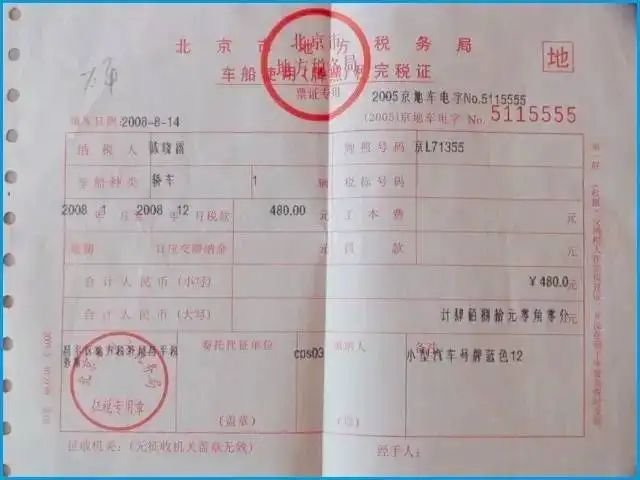 北京市地方税务局
车船使用(牌照)税完税证
北京市
地方税务局
票证专用
地
2005京地车电字No.5115555
(2005)京地车电字 No. 5115555
填发日期:2008-8-14
纳税人 陈晓 牌照号码 京L71355
车船种类 轿车 1 辆 税标号码
2008 年 1 月至 2008 年 12 月税款 480.00 元 工本费 元
逾期 日应交滞纳金 元 罚款 元
合计人民币(小写) ¥480.0元
合计人民币(大写) 计肆佰捌拾元零角零分
昌平区地方税务局昌平税务所
委托代征单位 cps03 填票人 备注
小型汽车号牌蓝色12
征税专用章
(盖章) (章)
征收机关: (无征收机关盖章无效) 经手人: